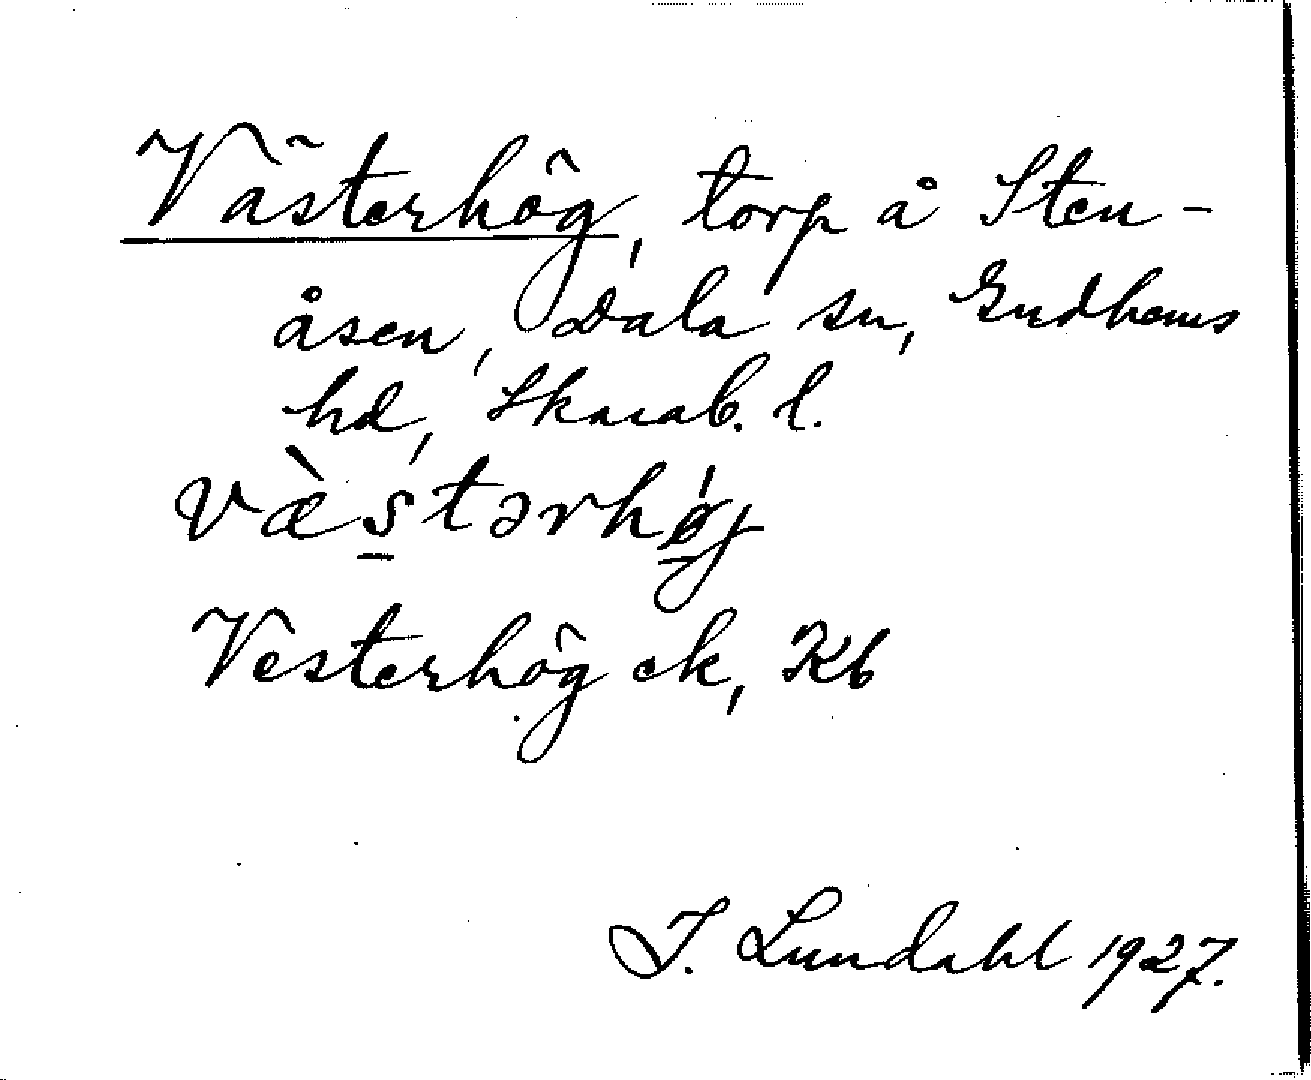 Västerhög, torp å Sten-
åsen, Dala sn, Gudhems
hd, Skarab. l.
væ̀stərhǿ̨j
Vesterhög ek, Kb
I. Lundahl 1927.